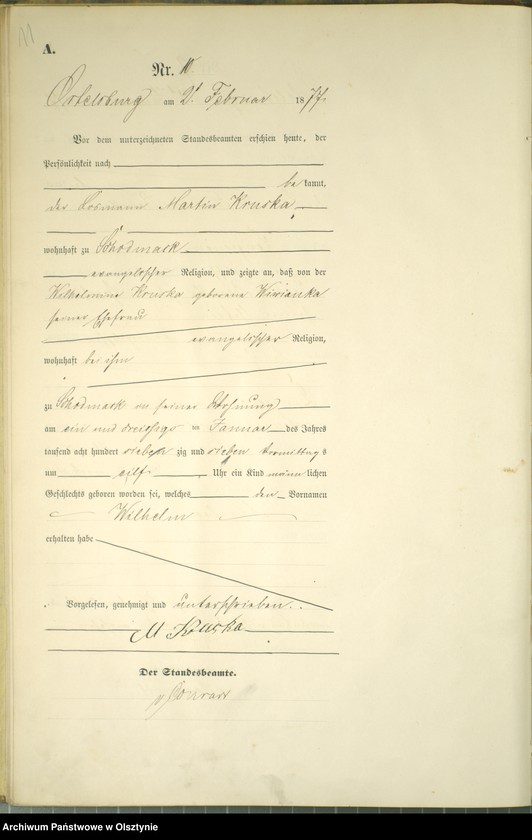 11
A.
Nr. 10.
Ortelsburg am 2t Februar 1877.
Vor dem unterzeichneten Standesbeamten erschien heute, der
Persönlichkeit nach
bekannt,
der Losmann Martin Kruska,
wohnhaft zu Schodmack
evangelischer Religion, und zeigte an, daß von der
Wilhelmine Kruska geborene
seiner Ehefrau
evangelischer Religion,
wohnhaft bei ihm
zu Schodmack in seiner Wohnung
am ein und dreißigs ten Januar des Jahres
tausend acht hundert siebenzig und sieben Vormittags
um eilf Uhr ein Kind männlichen
Geschlechts geboren worden sei, welches den Vornamen
Wilhelm
erhalten habe
Vorgelesen, genehmigt und unterschrieben.
M Kruska
Der Standesbeamte.
Archiwum Państwowe w Olsztynie